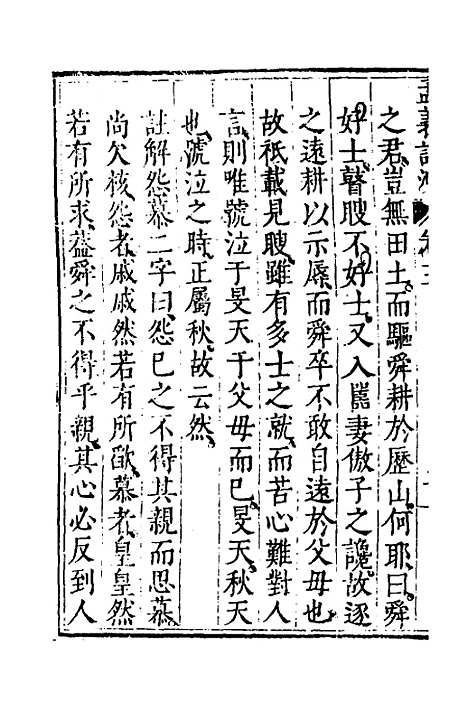 之君豈無田土而驅舜耕於歷山何耶曰舜
好士瞽瞍不好士又入嚚妻傲子之讒故逐
之遠耕以示辱而舜卒不敢自遠於父毋也
故祇載見瞍雖有多士之就而苦心難對人
言則唯號泣于旻天于父毋而已旻天秋天
也號泣之時正屬秋故云然
註解怨慕二字曰怨已之不得其親而思慕
尚欠核怨者戚戚然若有所㰸慕者皇皇然
若有所求葢舜之不得乎親其心必反到人